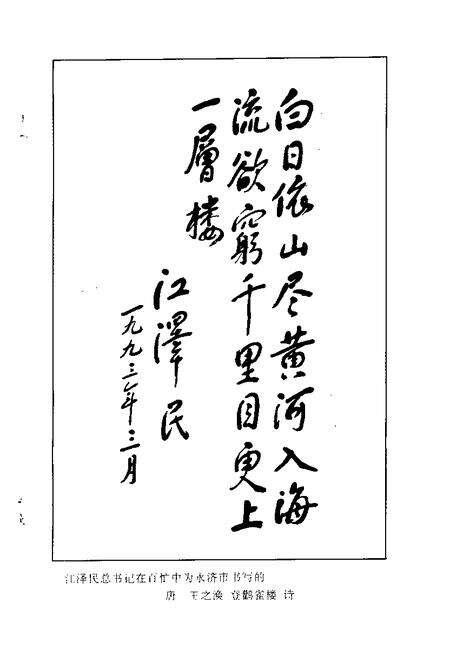 白日依山尽黄河入海
流欲窮千里目更上
一層楼
江澤民
一九九三年三月
江泽民总书记在百忙中为永济市书写的
唐 王之涣 登鹳雀楼 诗